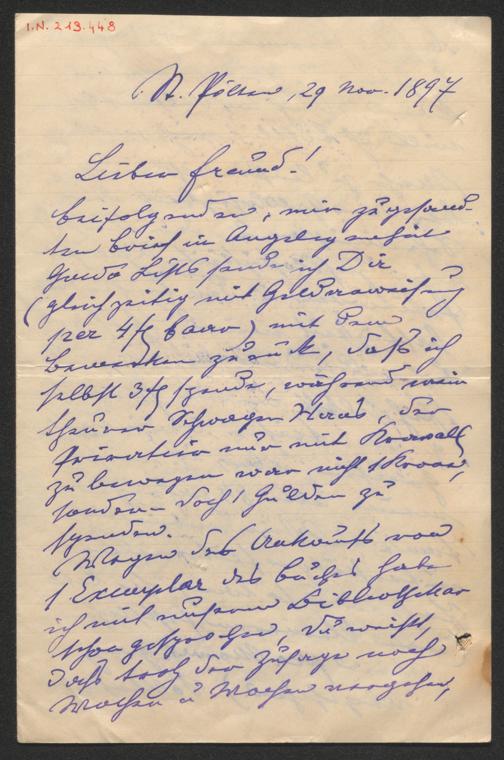 I.N. 213.448
St. Pölten, 29 Nov. 1897
Lieber Freund!
beifolgenden, mir zugesand-
ten Brief in Angelegenheit
Guido Lists sende ich Dir
(gleichzeitig mit Geldanweisung
per 4 fl baar) mit dem
Bemerken zurück, daß ich
selbst 3 fl spende, während mein
theurer Schwager Haas, der
Privatier nur mit
zu bewegen war nicht 1 Krone,
sondern doch 1 Gulden zu
spenden.
Wegen des Ankaufs von
1 Exemplar des Buches habe
ich mit unserem Bibliothekar
schon gesprochen, Du weißt,
daß trotz der Zusage noch
Wochen u Wochen vergehen,